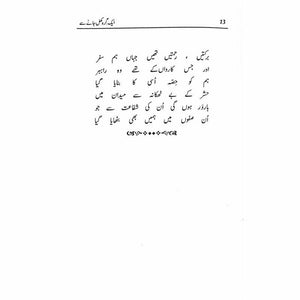 ایک گرہ کھل جانے سے
23
برکتیں ، رحمتیں تھیں جہاں ہم سفر
اور جس کارواں کے تھے وہ راہبر
ہم کو حصّہ اُسی کا بنایا گیا
حشر کے بے ٹھکانہ سے میدان میں
بارور ہوں گی اُن کی شفاعت سے جو
اُن صفوں میں ہمیں بھی اٹھایا گیا